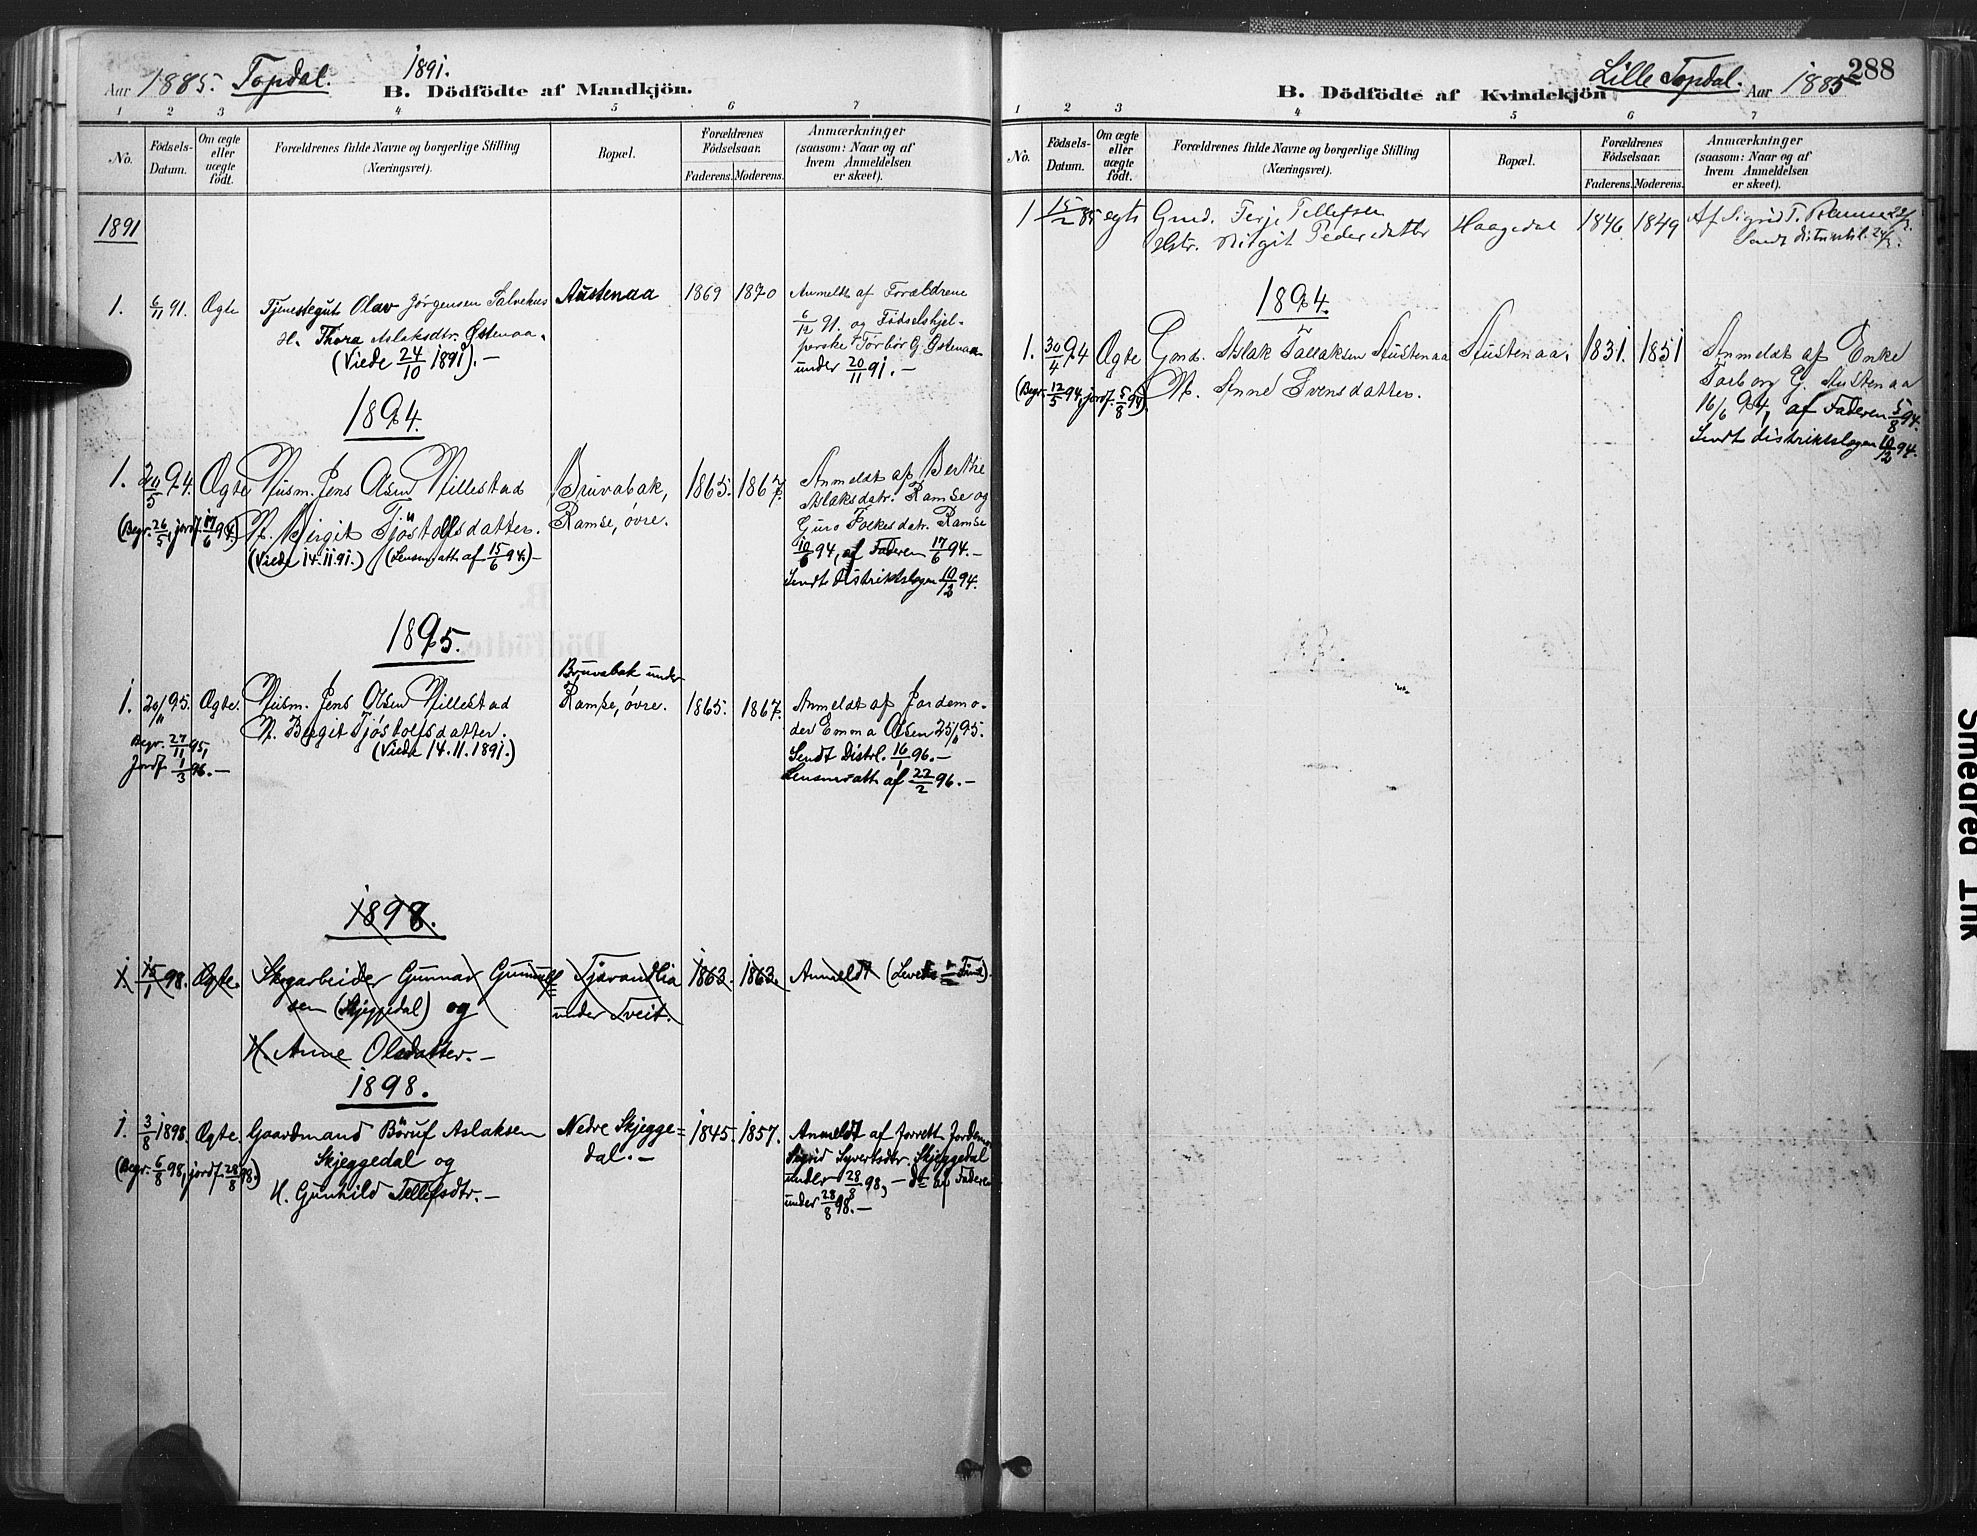 Aar 1885. Topdal. 1891.
B. Dödfödte af Mandkjön.
1 2 3 4 5 6 7
No.
Födsels-
Datum.
Om ægte
eller
uægte
födt.
Forældrenes fulde Navne og borgerlige Stilling
(Næringsvei).
Bopæl.
Forældrenes
Födselsaar.
Faderens. Moderens.
Anmærkninger
(saasom: Naar og af
hvem Anmeldelsen
er skeet).
1891
1. 6/11 91. Ægte Tjenestegut Olav Jörgensen Salvehus Austenaa 1869 1870 Anmeldt af Forældrene
H. Thora Aslaksdtr. Östenaa. 6/12 91. og Födselshjel-
(Viede 24/10 1891). — perske Torbor G. Östenaa
under 20/11 91. —
1894.
1. 20/5 94. Ægte Husm. Jens Olsen Hillestad Bruvabak, 1865. 1867. Anmeldt af Berthe
Aslaksdatr. Ramse og
(Begr. 26/5, jordf. 17/6 94.) H. Birgit Tjöstolfsdatter. Ramse, övre. Guro Folkesdatr. Ramse
(Viede 14.11.91.) (Lensm. att. af 15/6 94.) — 10/6 94, af Faderen 17/6 94. —
Sendt distriktslægen 10/2 94.
1895.
Bruvabak under
1. 20/11 95. Ægte. Husm. Jens Olsen Hillestad Ramse, övre. 1865. 1867. Anmeldt af Jordemo-
H. Birgit Tjöstolfsdatter. der Emma Olsen 25/11 95.
Begr. 27/11 95, (Viede 14.11.1891.) Sendt Distrl. 16/1 96. —
Jordf. 1/3 96. — Lensm. att. af 22/2 96. —
1898.
1. 15/1 98. Ægte. Skogarbeider Gunnar Gunnulf= Tjavandlia 1863. 1863. Anmeldt (Levede Time).
sen (Skjeggedal) og under Tveit.
H. Anne Olsdatter. —
1898.
1. 3/8 1898. Ægte. Gaardmand Böruf Aslaksen Nedre Skjegge= 1845. 1857. Anmeldt af forrett. Jordem.
(Begr. 6/8 98, jordf. 28/8 98.) Skjeggedal og dal. — Sigrid Syvertsdtr. Skjeggedal
H. Gunhild Tellefsdtr. — under 28/8 98, — do af Faderen
under 28/8 98. —
Lille Topdal. Aar 1885 288
B. Dödfödte af Kvindekjön
1 2 3 4 5 6 7
No.
Födsels-
Datum.
Om ægte
eller
uægte
födt.
Forældrenes fulde Navne og borgerlige Stilling
(Næringsvei).
Bopæl.
Forældrenes
Födselsaar.
Faderens. Moderens.
Anmærkninger
(saasom: Naar og af
hvem Anmeldelsen
er skeet).
1 15/2 85 egte Gmd. Terje Tellefsen Haagedal 1846 1849 Af Sigrid T. Ramse 22/2
Hstr. Birgit Pedersdatter Sendt distriktsl. 24/2.
1894.
1. 30/4 94 Ægte Gmd. Aslak Tallaksen Austenaa Austenaa. 1831. 1851 Anmeldt af Enke
(Begr. 12/5 94, jordf. 5/8 94) H. Anne Svensdatter. Torborg G. Austenaa
16/6 94, af Faderen 5/8 94.
Sendt distriktslægen 10/2 94.
Smeared Ink